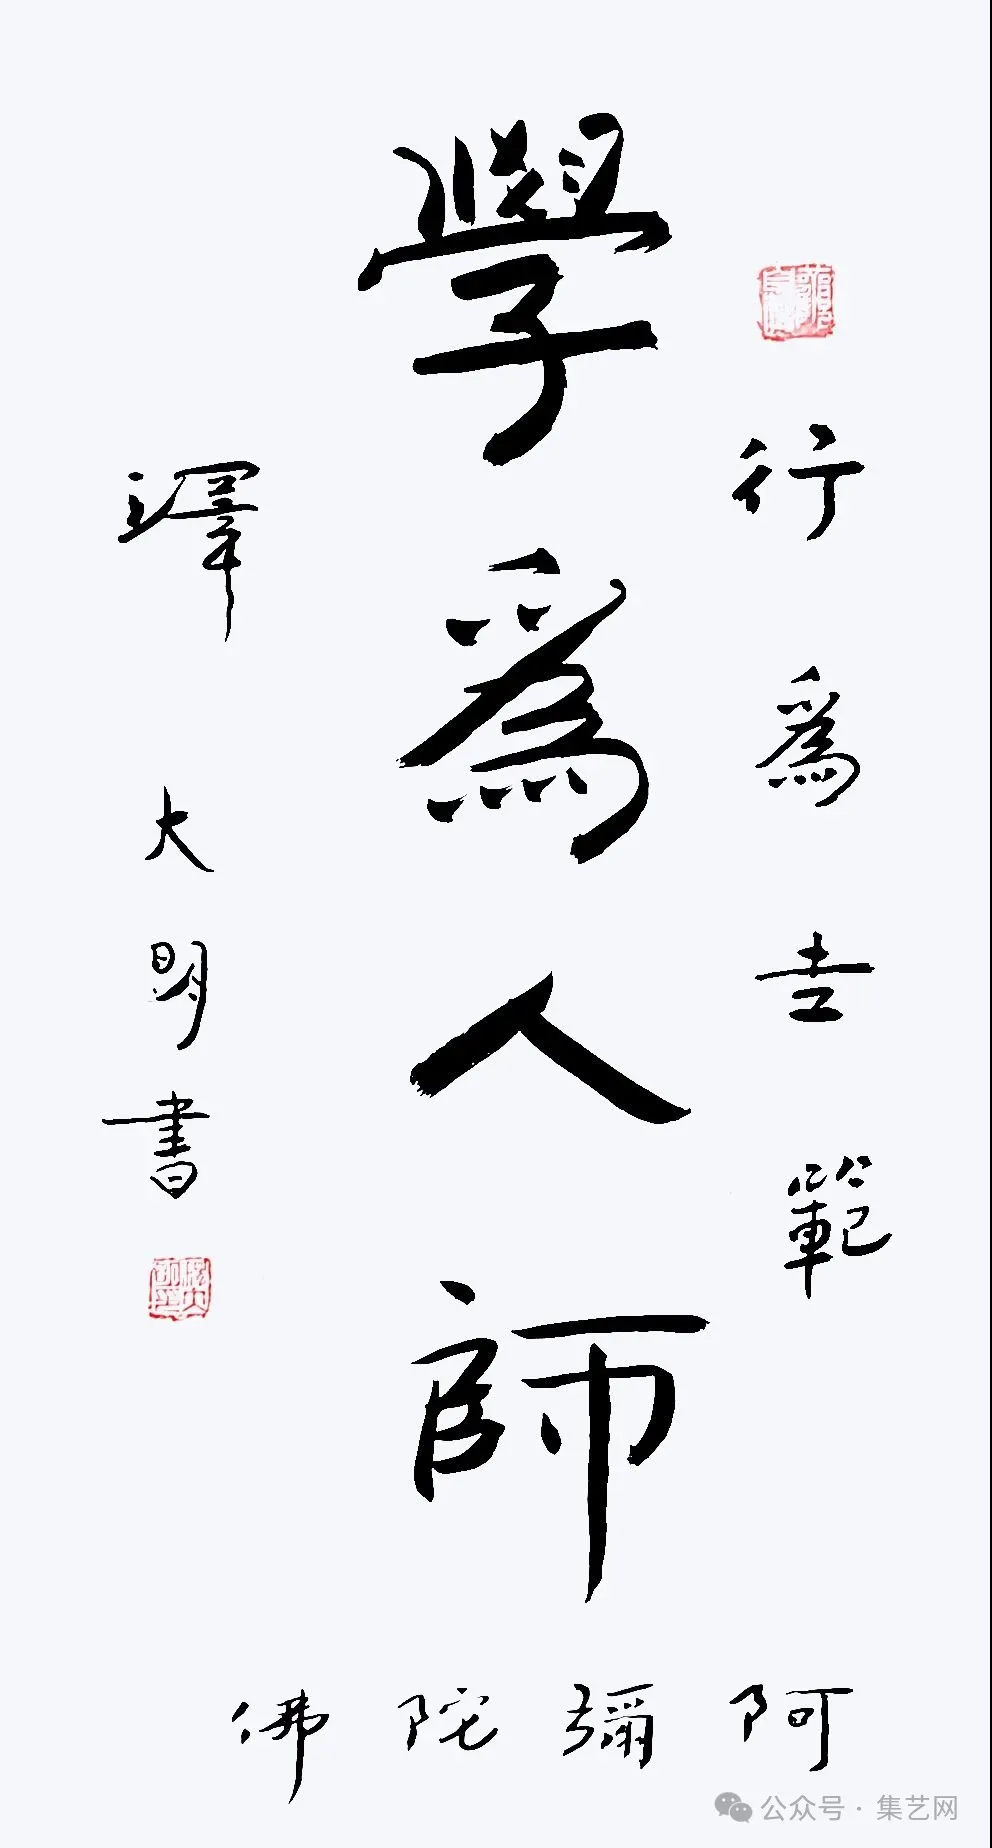 行爲世範
學爲人師
大明書
阿彌陀佛
公众号 · 集艺网